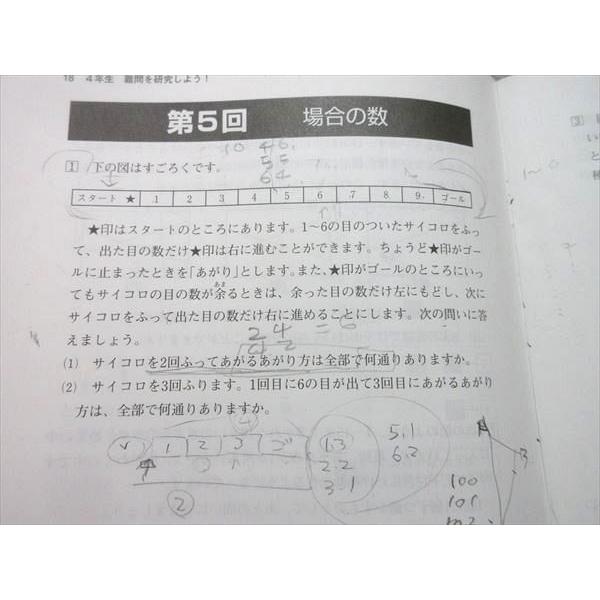 18 4年生 難問を研究しよう!
第5回 場合の数
10 46.
55
64
1 下の図はすごろくです。
スタート ★ 1 2 3 4 5 6 7 8 9 ゴール
★印はスタートのところにあります。1~6の目のついたサイコロをふっ
て、出た目の数だけ★印は右に進むことができます。ちょうど★印がゴー
ルに止まったときを「あがり」とします。また、★印がゴールのところにいっ
てもサイコロの目の数が余るときは、余った目の数だけ左にもどし、次に
あま
サイコロをふって出た目の数だけ右に進めることにします。次の問いに答
えましょう。
24 = 6
(1) サイコロを2回ふってあがるあがり方は全部で何通りありますか。
(2) サイコロを3回ふります。1回目に6の目が出て3回目にあがるあがり
方は、全部で何通りありますか。
1 2 3 ゴ
1.3
2.2
3.1
5.1
6.2
②
100
101